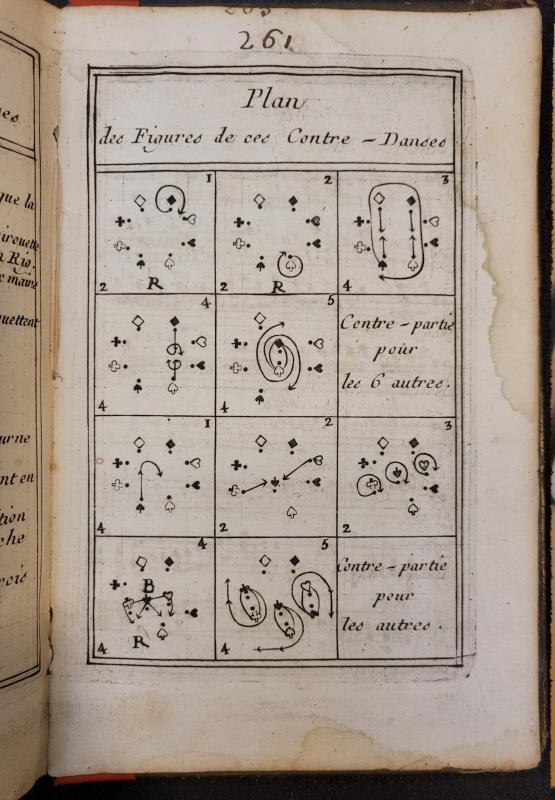 261
Plan
des Figures de ces Contre - Danses
1
2
R
2
2
R
3
4
4
4
5
4
Contre - partie
pour
les 6 autres.
1
4
2
2
3
2
4
B
R
4
5
4
Contre - partie
pour
les autres.
que la
irouette
a Rig.
e main
uettent
urne
nt en
tion
che
rois